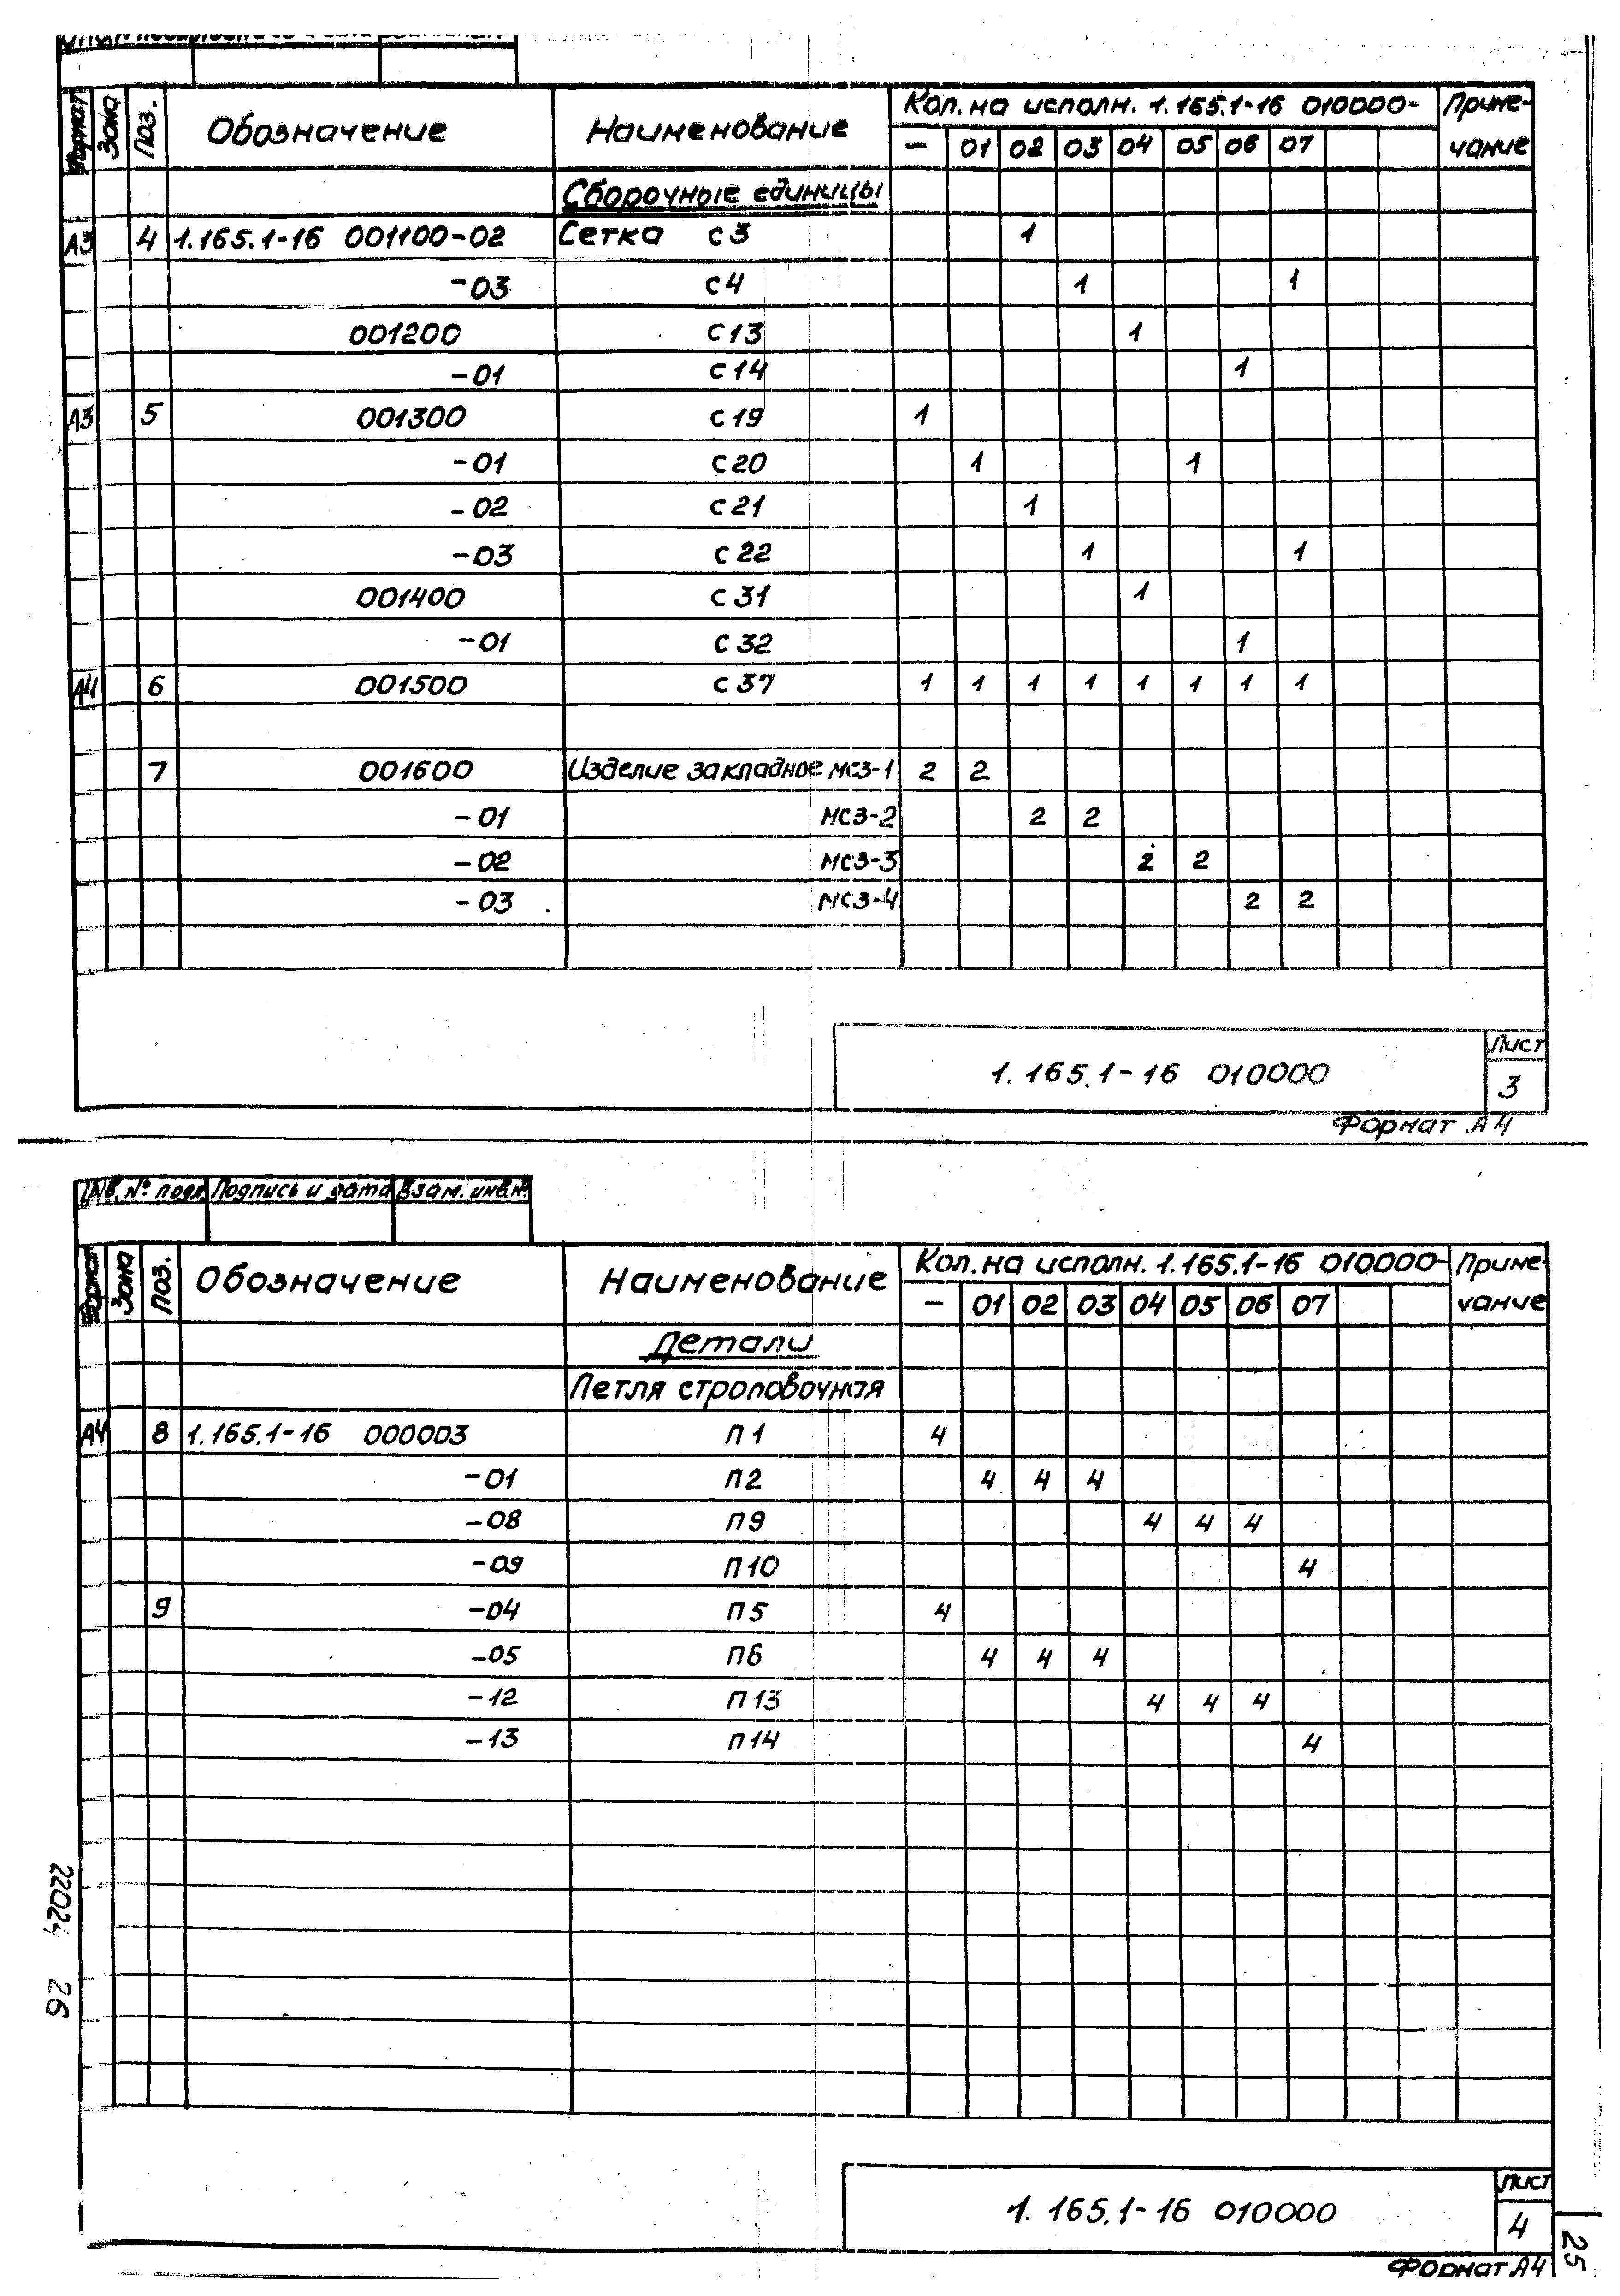 Формат Зона Поз. Обозначение Наименование Кол. на исполн. 1.165.1-16 010000- Приме-
– 01 02 03 04 05 06 07 чание
Сборочные единицы
А3 4 1.165.1-16 001100-02 Сетка С3 1
-03 С4 1 1
001200 С13 1
-01 С14 1
А3 5 001300 С19 1
-01 С20 1 1
-02 С21 1
-03 С22 1 1
001400 С31 1
-01 С32 1
А4 6 001500 С37 1 1 1 1 1 1 1 1
7 001600 Изделие закладное МС3-1 2 2
-01 МС3-2 2 2
-02 МС3-3 2 2
-03 МС3-4 2 2
1.165.1-16 010000
Лист
3
Формат А4
Инв. № подл. Подпись и дата Взам. инв. №
Формат Зона Поз. Обозначение Наименование Кол. на исполн. 1.165.1-16 010000- Приме-
– 01 02 03 04 05 06 07 чание
Детали
Петля строповочная
А4 8 1.165.1-16 000003 П1 4
-01 П2 4 4 4
-08 П9 4 4 4
-09 П10 4
9 -04 П5 4
-05 П6 4 4 4
-12 П13 4 4 4
-13 П14 4
22024 26
1.165.1-16 010000
Лист
4
Формат А4
25